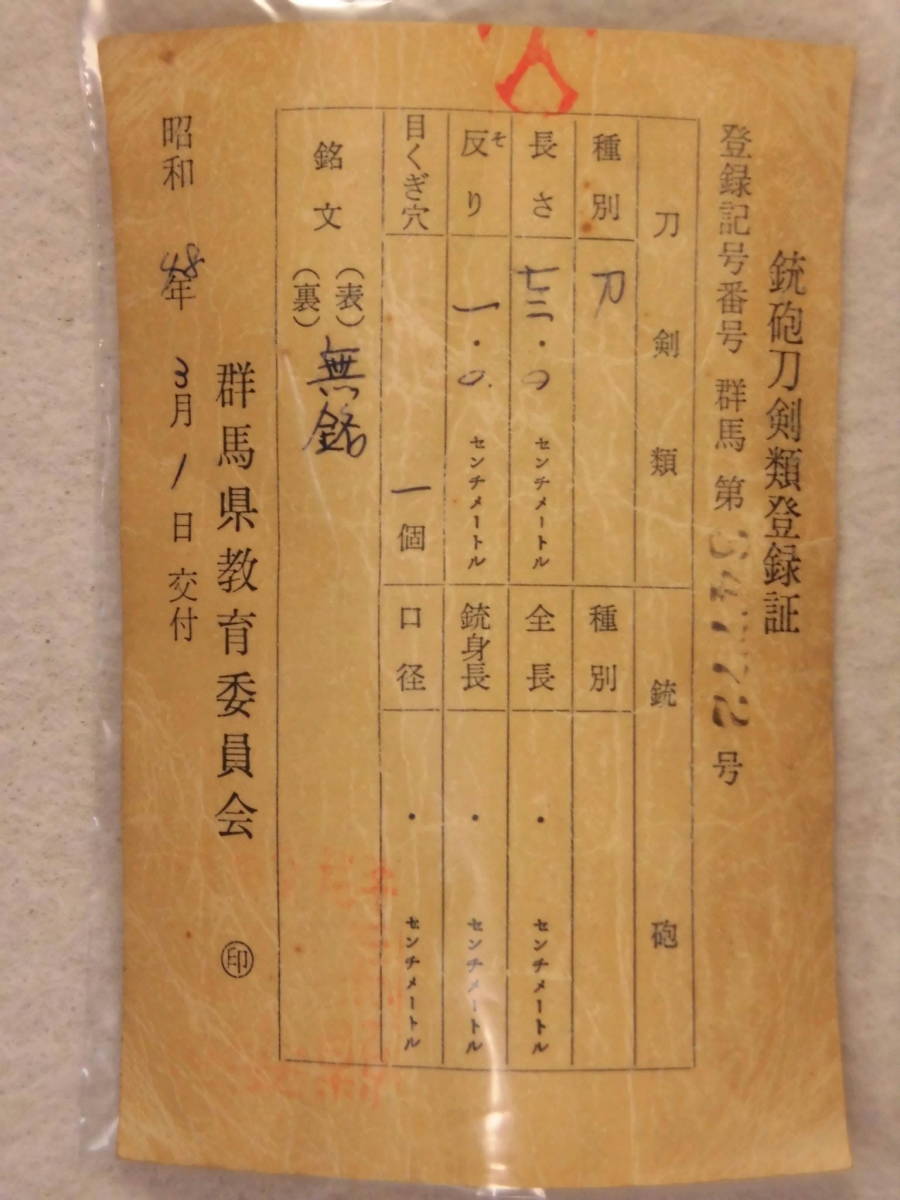 銃砲刀剣類登録証
登録記号番号 群馬 第 号
刀剣類 銃砲
種別 刀 種別
長さ 七二・0 センチメートル 全長 ・ センチメートル
反り そ 一・0 センチメートル 銃身長 ・ センチメートル
目くぎ穴 一個 口径 ・ センチメートル
銘文 (表) 無銘
(裏)
群馬県教育委員会 印
昭和 48年 3月 1日 交付